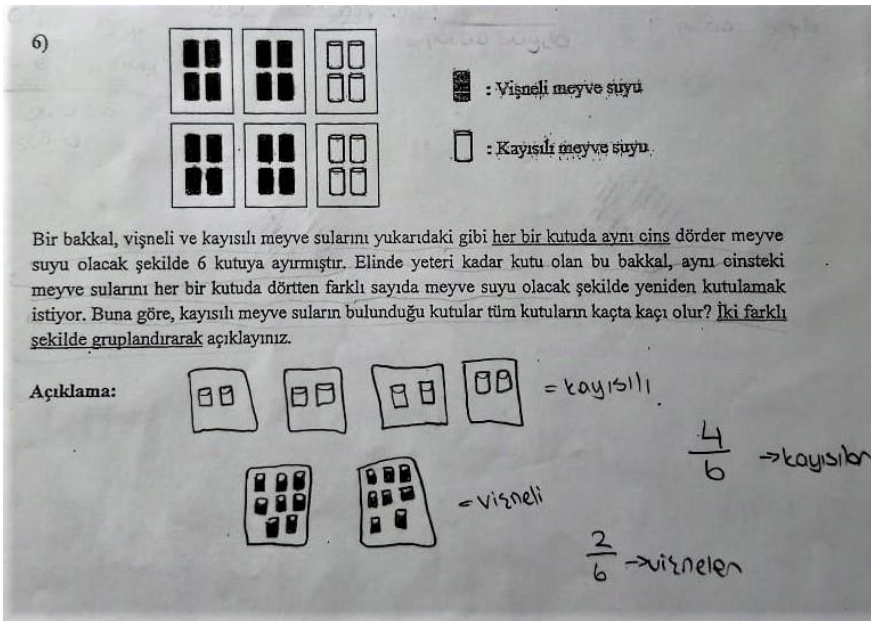 6)
: Vişneli meyve suyu
: Kayısılı meyve suyu.
Bir bakkal, vişneli ve kayısılı meyve sularını yukarıdaki gibi her bir kutuda aynı cins dörder meyve
suyu olacak şekilde 6 kutuya ayırmıştır. Elinde yeteri kadar kutu olan bu bakkal, aynı cinsteki
meyve sularını her bir kutuda dörtten farklı sayıda meyve suyu olacak şekilde yeniden kutulamak
istiyor. Buna göre, kayısılı meyve suların bulunduğu kutular tüm kutuların kaçta kaçı olur? İki farklı
şekilde gruplandırarak açıklayınız.
Açıklama:
= kayısılı
= vişneli
4/6 → kayısılar
2/6 → vişneler